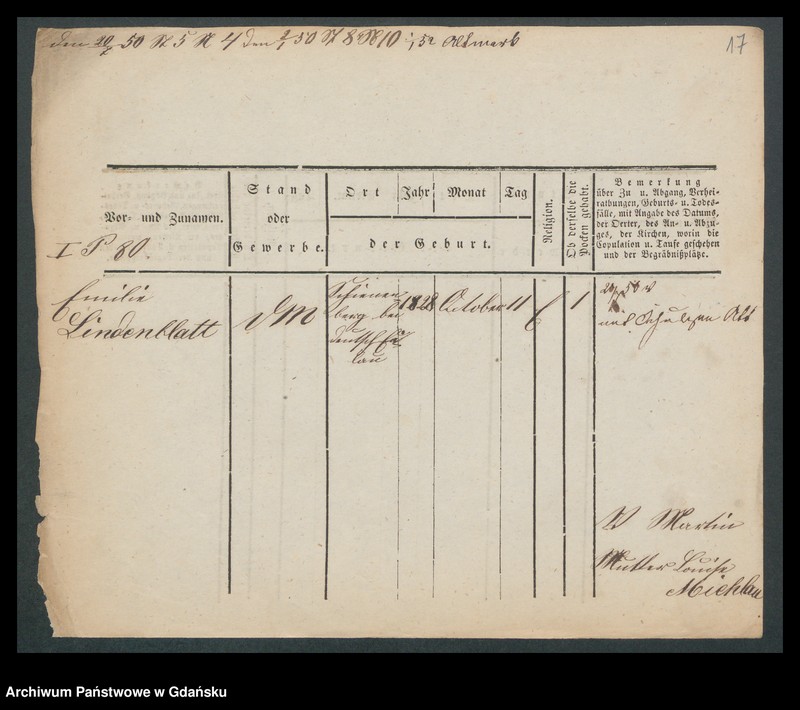 den 20/7 50 N 5 N 4 den 2/1 50 N 8 N 10 Altmark
17
Vor- und Zunamen.
Stand
oder
Gewerbe.
Ort
Jahr
Monat
Tag
der Geburt.
Religion.
Ob derselbe die
Pocken gehabt.
Bemerkung
über Zu u. Abgang, Verhei-
rathungen, Geburts- u. Todes-
fälle, mit Angabe des Datums,
der Oerter, des An- u. Abzu-
ges, der Kirchen, worin die
Copulation u. Taufe geschehen
und der Begräbnißplätze.
I P 80.
Emilie
Lindenblatt
DM
berg bei
deutsch Ei-
lau
1828
October
11
1
Martin
Mutter Louise
Michlau
Archiwum Państwowe w Gdańsku